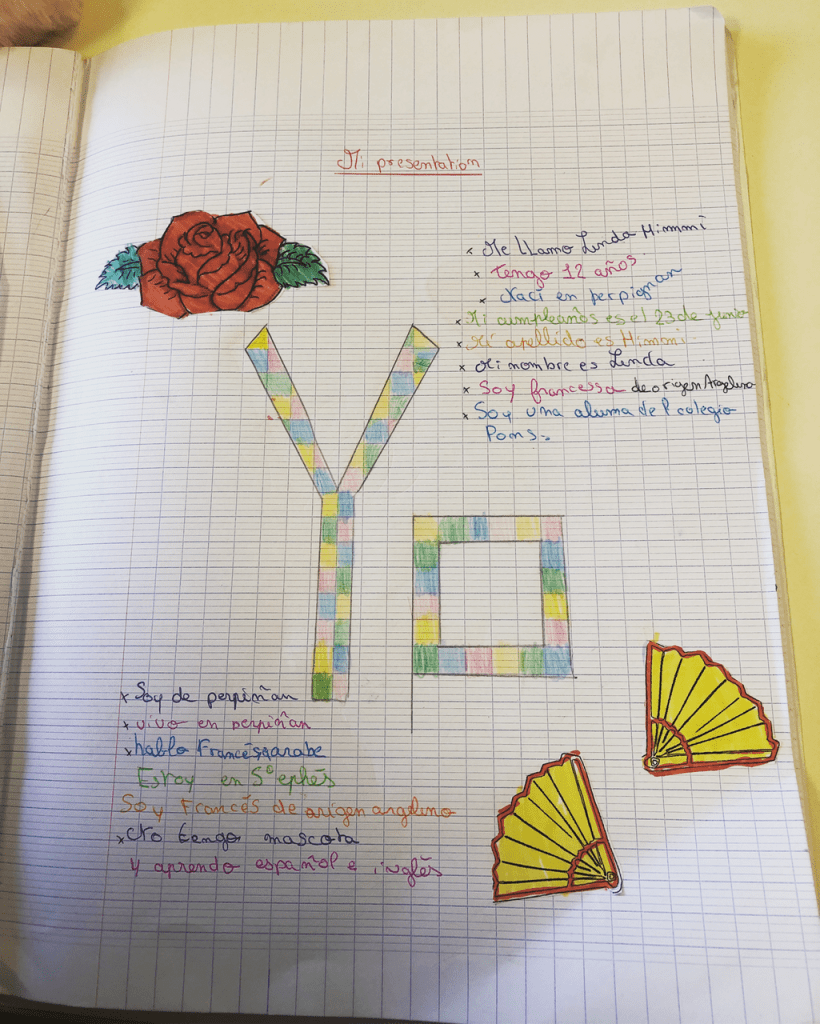 Mi presentation
× Me llamo Linda Himmi
× tengo 12 años.
× Naci en perpignan
× Mi cumpleaños es el 23 de junio
× Mi apellido es Himmi
× Mi nombre es Linda
× Soy francessa de origen Argelino
× Soy una aluma del colegio
Pons.
YO
× Soy de perpiñan
× vivo en perpiñan
× hablo Francés y arabe
Estoy en 5° ephés
Soy Francés de origen angelino
× No tengo mascota
y aprendo español e inglés